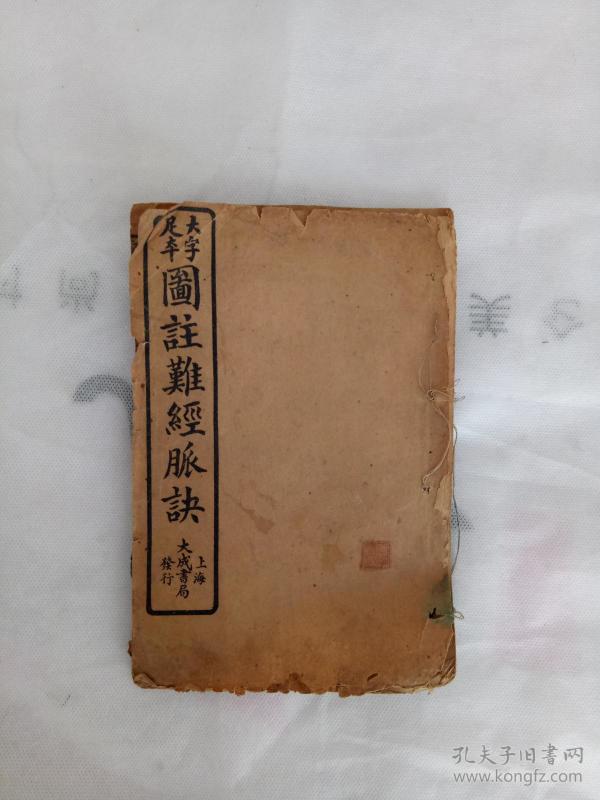 大字
足本
圖註難經脈訣
上海
大成書局
發行
孔夫子旧书网
www.kongfz.com